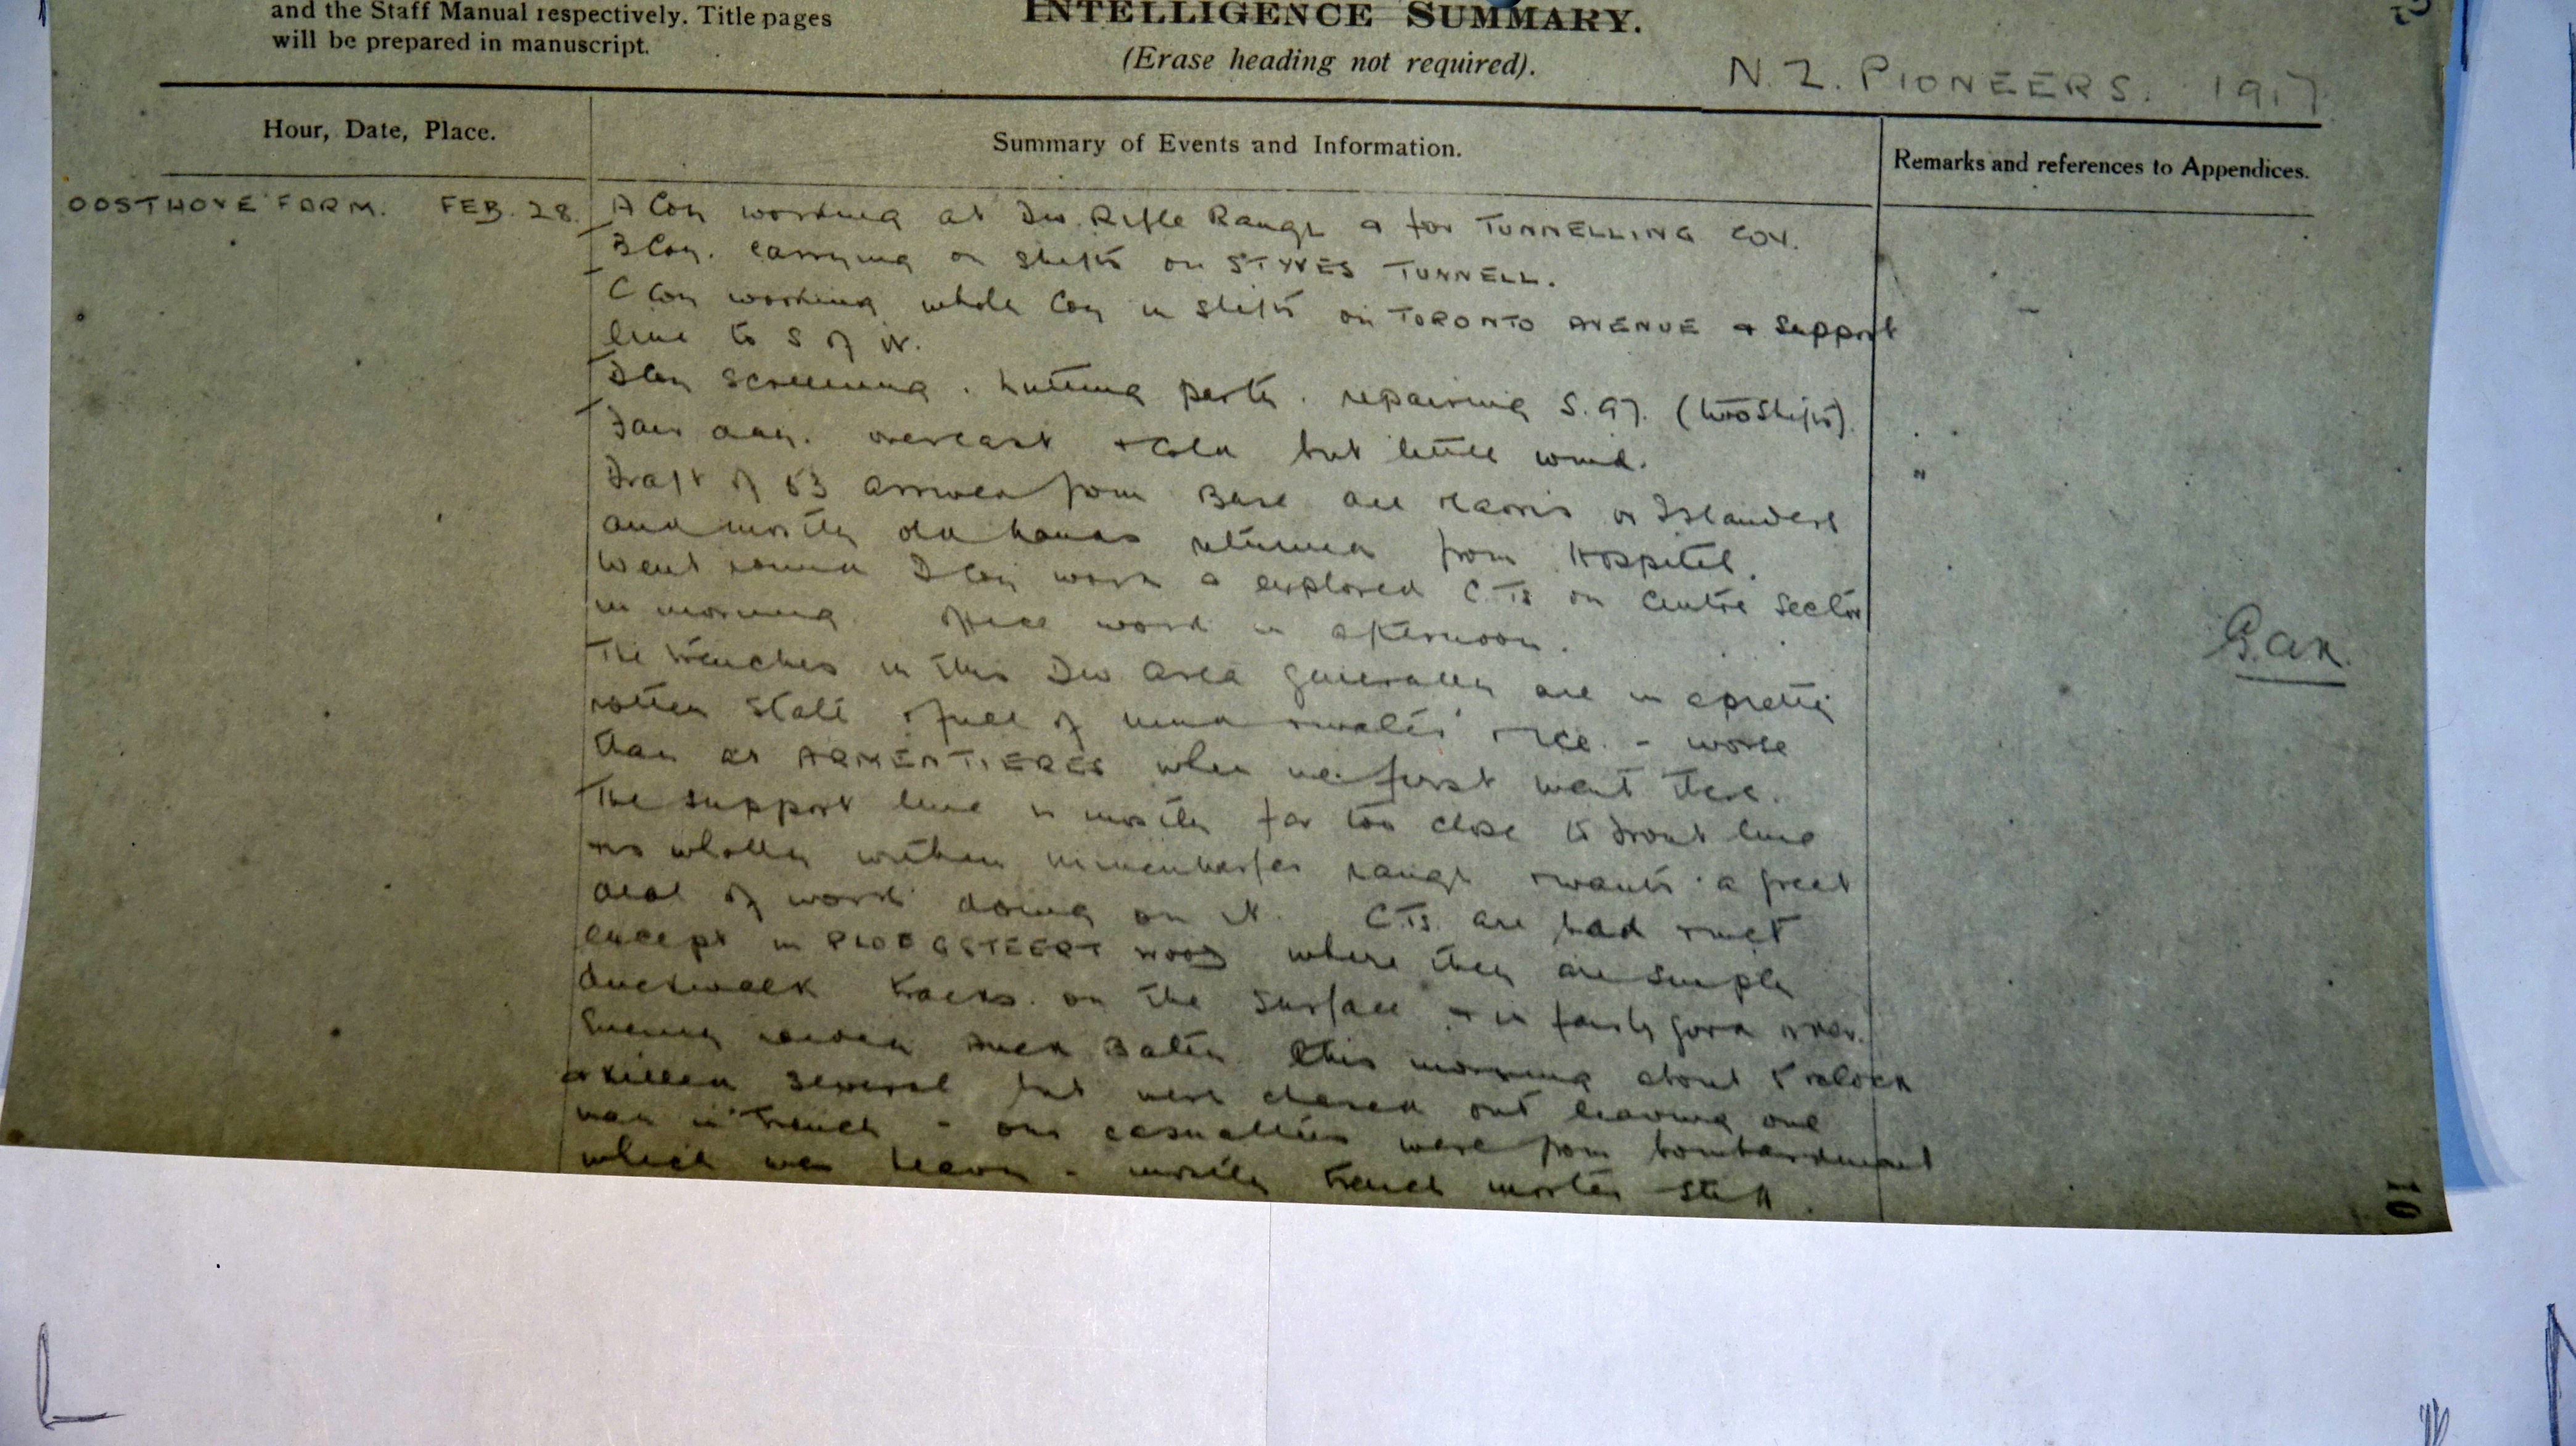 and the Staff Manual respectively. Title pages
will be prepared in manuscript.
INTELLIGENCE SUMMARY.
(Erase heading not required).
N.Z. PIONEERS. 1917
Hour, Date, Place.
Summary of Events and Information.
Remarks and references to Appendices.
OOSTHOVE FARM. FEB. 28.
A Coy working at Div. Rifle Range & for TUNNELLING COY.
B Coy. carrying on shifts on STYVES TUNNELL.
C Coy working whole Coy in shifts on TORONTO AVENUE & support
line to S of it.
D Coy screening. hutting party. repairing S.97. (two shifts).
Fair day. overcast & cold but little wind.
Draft of 53 arrived from Base all Maoris or Islanders
and mostly old hands returned from Hospital.
Went round D Coy work & explored C.Ts on Centre Sector
in morning. Office work in afternoon.
The trenches in this Div area generally are in a pretty
rotten state & full of mud & water & ice. - worse
than at ARMENTIERES when we first went there.
The support line is mostly far too close to front line
& is wholly within minenwerfer range & wants a great
deal of work doing on it. C.Ts. are bad & wet
except in PLOEGSTEERT WOOD where they are simply
duckwalk tracks on the surface & in fairly good order.
Enemy raided Batn this morning about 5 oclock
& killed several but were chased out leaving one
man in trench - our casualties were from bombardment
which was heavy - mostly trench mortar stuff.
G.A.K.
10